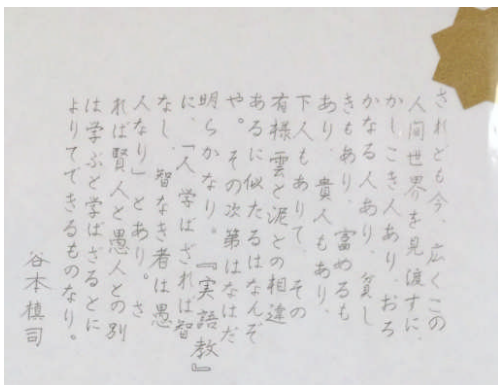 されども今、広くこの
人間世界を見渡すに、
かしこき人あり、おろ
かなる人あり、貧し
きもあり、富めるも
あり、貴人もあり、
下人もありて、その
有様雲と泥との相違
あるに似たるはなんぞ
や。その次第はなはだ
明らかなり。『実語教』
に、「人学ばざれば智
なし、智なき者は愚
人なり」とあり。さ
れば賢人と愚人との別
は学ぶと学ばざるとに
よりてできるものなり。
谷本槙司